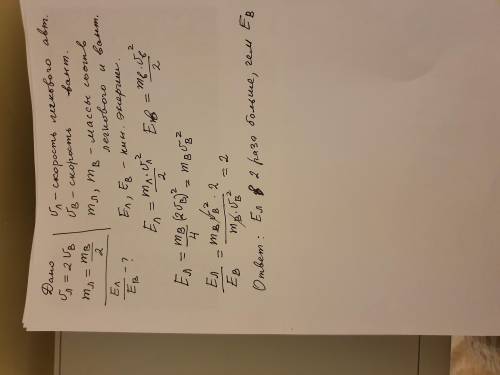 Дано
υл = 2υв
mл = mв/2
Eл/Eв - ?
υл - скорость легкового авт.
υв - скорость вант.
mл, mв - массы соотв
легкового и вант.
Eл, Eв - кин. энергии.
Eл = mл·υл²/2 Eв = mв·υв²/2
Eл = mв(2υв)²/4 = mвυв²
Eл/Eв = mвυв²·2/mв·υв² = 2
Ответ: Eл в 2 раза больше, чем Eв